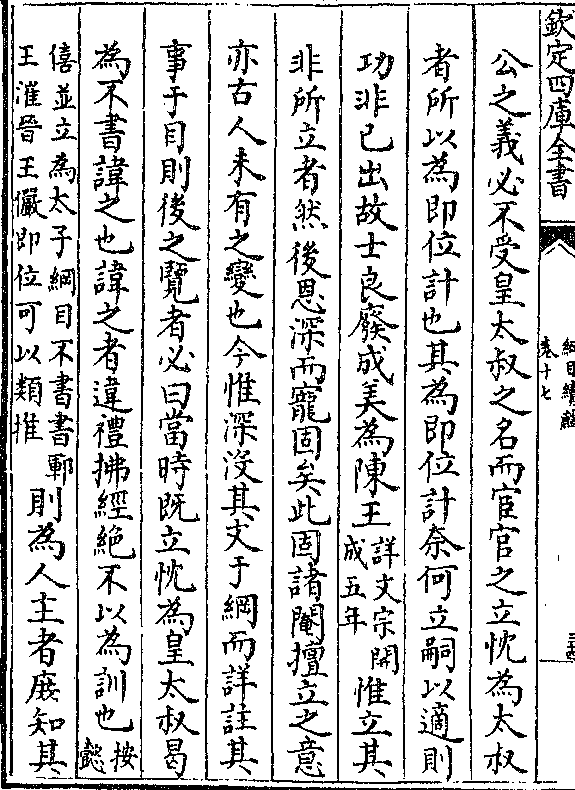 欽定四庫全書
綱目續麟
卷十七
公之義必不受皇太叔之名而宦官之立忱為太叔
者所以為即位計也其為即位計奈何立嗣以適則
功非已出故士良廢成美為陳王詳文宗開成五年惟立其
非所立者然後恩深而寵固矣此固諸閹擅立之意
亦古人未有之變也今惟深沒其文于綱而詳註其
事于目則後之覽者必曰當時既立忱為皇太叔曷
為不書諱之也諱之者違禮拂經絕不以為訓也按懿
僖並立為太子綱目不書書鄆王漼晉王儼即位可以類推則為人主者庶知其